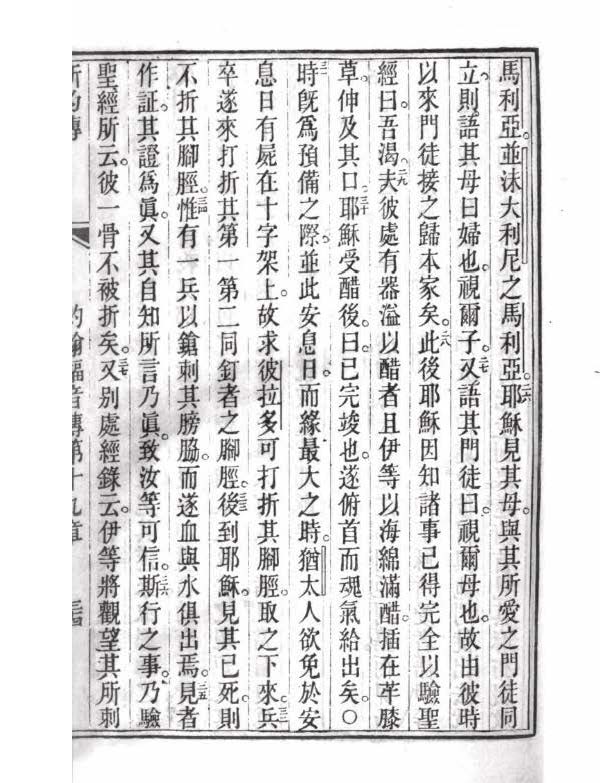 馬利亞。並沬大利尼之馬利亞。二六耶穌見其母。與其所愛之門徒同
立。則語其母曰婦也。視爾子。二七又語其門徒曰。視爾母也。故由彼時
以來門徒接之歸本家矣。二八此後耶穌因知諸事已得完全以驗聖
經曰。吾渴。二九夫彼處有器溢以醋者且伊等以海綿滿醋。插在苹膝
草。伸及其口。三十耶穌受醋後。曰已完竣也。遂俯首而魂氣給出矣。〇
三一時旣爲預備之際。並此安息日而緣最大之時。猶太人欲免於安
息日有屍在十字架上。故求彼拉多可打折其腳脛。取之下來。三二兵
卒遂來打折其第一第二同釘者之腳脛。三三後到耶穌。見其已死。則
不折其腳脛。三四惟有一兵以鎗刺其膀脇。而遂血與水俱出焉。三五見者
作証。其證爲眞。又其自知所言乃眞。致汝等可信。三六斯行之事。乃驗
聖經所云。彼一骨不被折矣。三七又別處經錄云。伊等將觀望其所刺
約翰福音傳第十九章